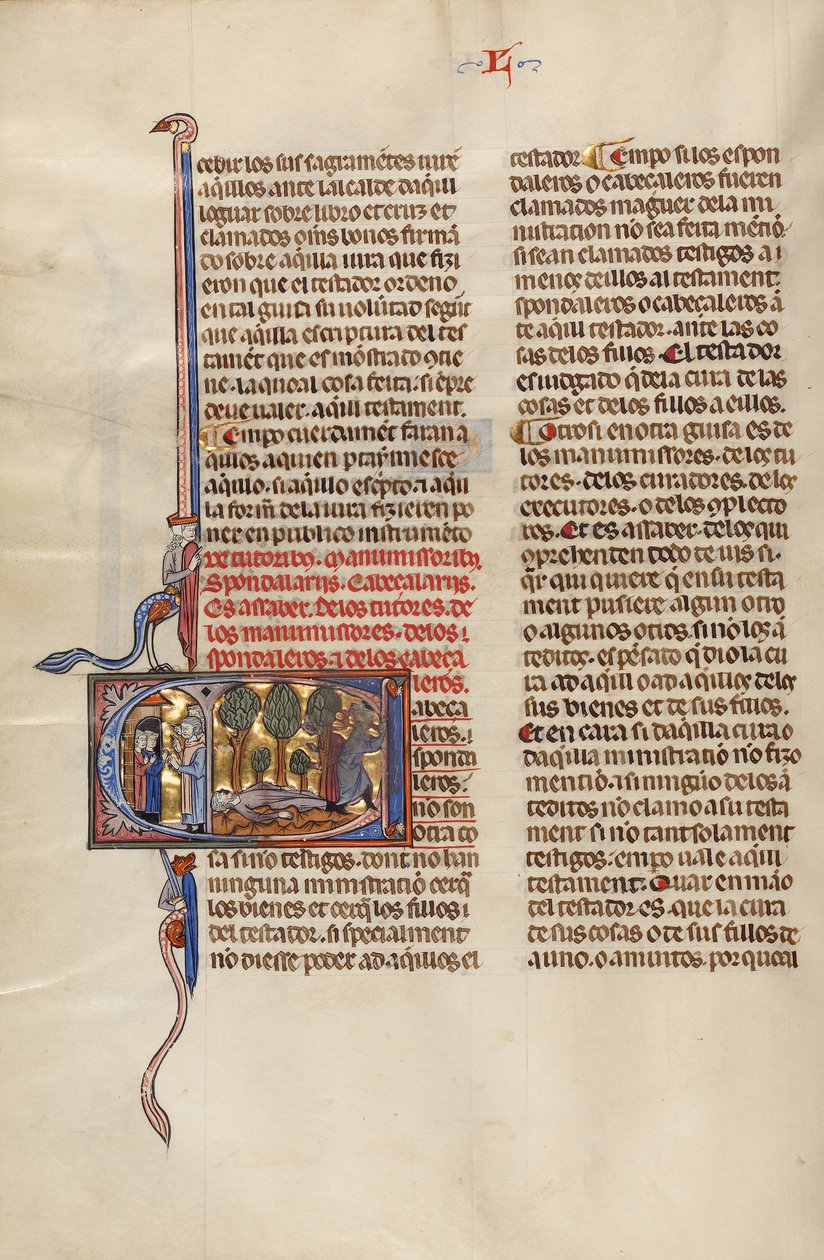 L
cebir los sus sagramētes iurē
aq̄illos ante lalcalde daq̄ui
loguar sobre libro et cruz et
clamados oms bonos firmā
do sobre aq̄illa iura que fizi
eron que el testador ordeno
en tal guisa su uolūtad segūt
que aq̄illa escriptura del tes
tamēt que es mōstrado ꝯtie
ne. la quoal cosa feita. siēpre
deue ualer. aq̄ui testament.
Empo cuerdamēt faran a
quillos
aquio. si aq̄uio escⁱpto. ⁊ aq̄ui
la form̄ dela iura fizieren po
ner en publico instrumēto
De tutoribꝰ. Manumissoribꝰ.
Spondalarijs. Cabeçalarijs.
Es assaber. Delos tutores. de
los manumissores. delos
spondaleros. ⁊ delos cabeça
leros.
Cabeça
leros. ⁊
sponda
leros.
no son
otra co
sa sino testigos. dont no han
ninguna ministraciō cerq̄
los bienes et cerq̄ los fillos
del testador. si specialment
nō diesse poder ad aq̄uillos el
testador. Empo si los espon
daleros o cabeçaleros fueren
clamados maguer dela mi
nistracion nō sea feita mētiō.
si sean clamados testigos a
menos deillos al testament.
spondaleros o cabeçaleros
te aq̄ui testador. ante las co
sas delos fillos. El testador
es iudgado q̄ dela cura de las
cosas et de los fillos a eillos.
Otrosi en otra guisa es de
los manumissores. delos tu
tores. delos curadores. delos
executores. o delos ꝯplecto
res. Et es assaber. delos qui
ꝯprehenden todo teuis si.
q̄r qui quiere q̄ en su testa
ment pusiere algun otro
o algunos otros. si nō los
teditos. es pēsato q̄ dio la cu
ra ad aq̄ui o ad aq̄uillos delos
sus bienes et de sus fillos.
Et en cara si daq̄illa cura o
daq̄illa ministratiō nō fizo
mentiō. ⁊ si ningūo delos
teditos nō clamo a su testa
ment si nō tant solament
testigos. empo uale aq̄ui
testament. Quar en māo
del testador es. que la cura
de sus cosas o de sus fillos de
a uno. o a muitos. por quoal